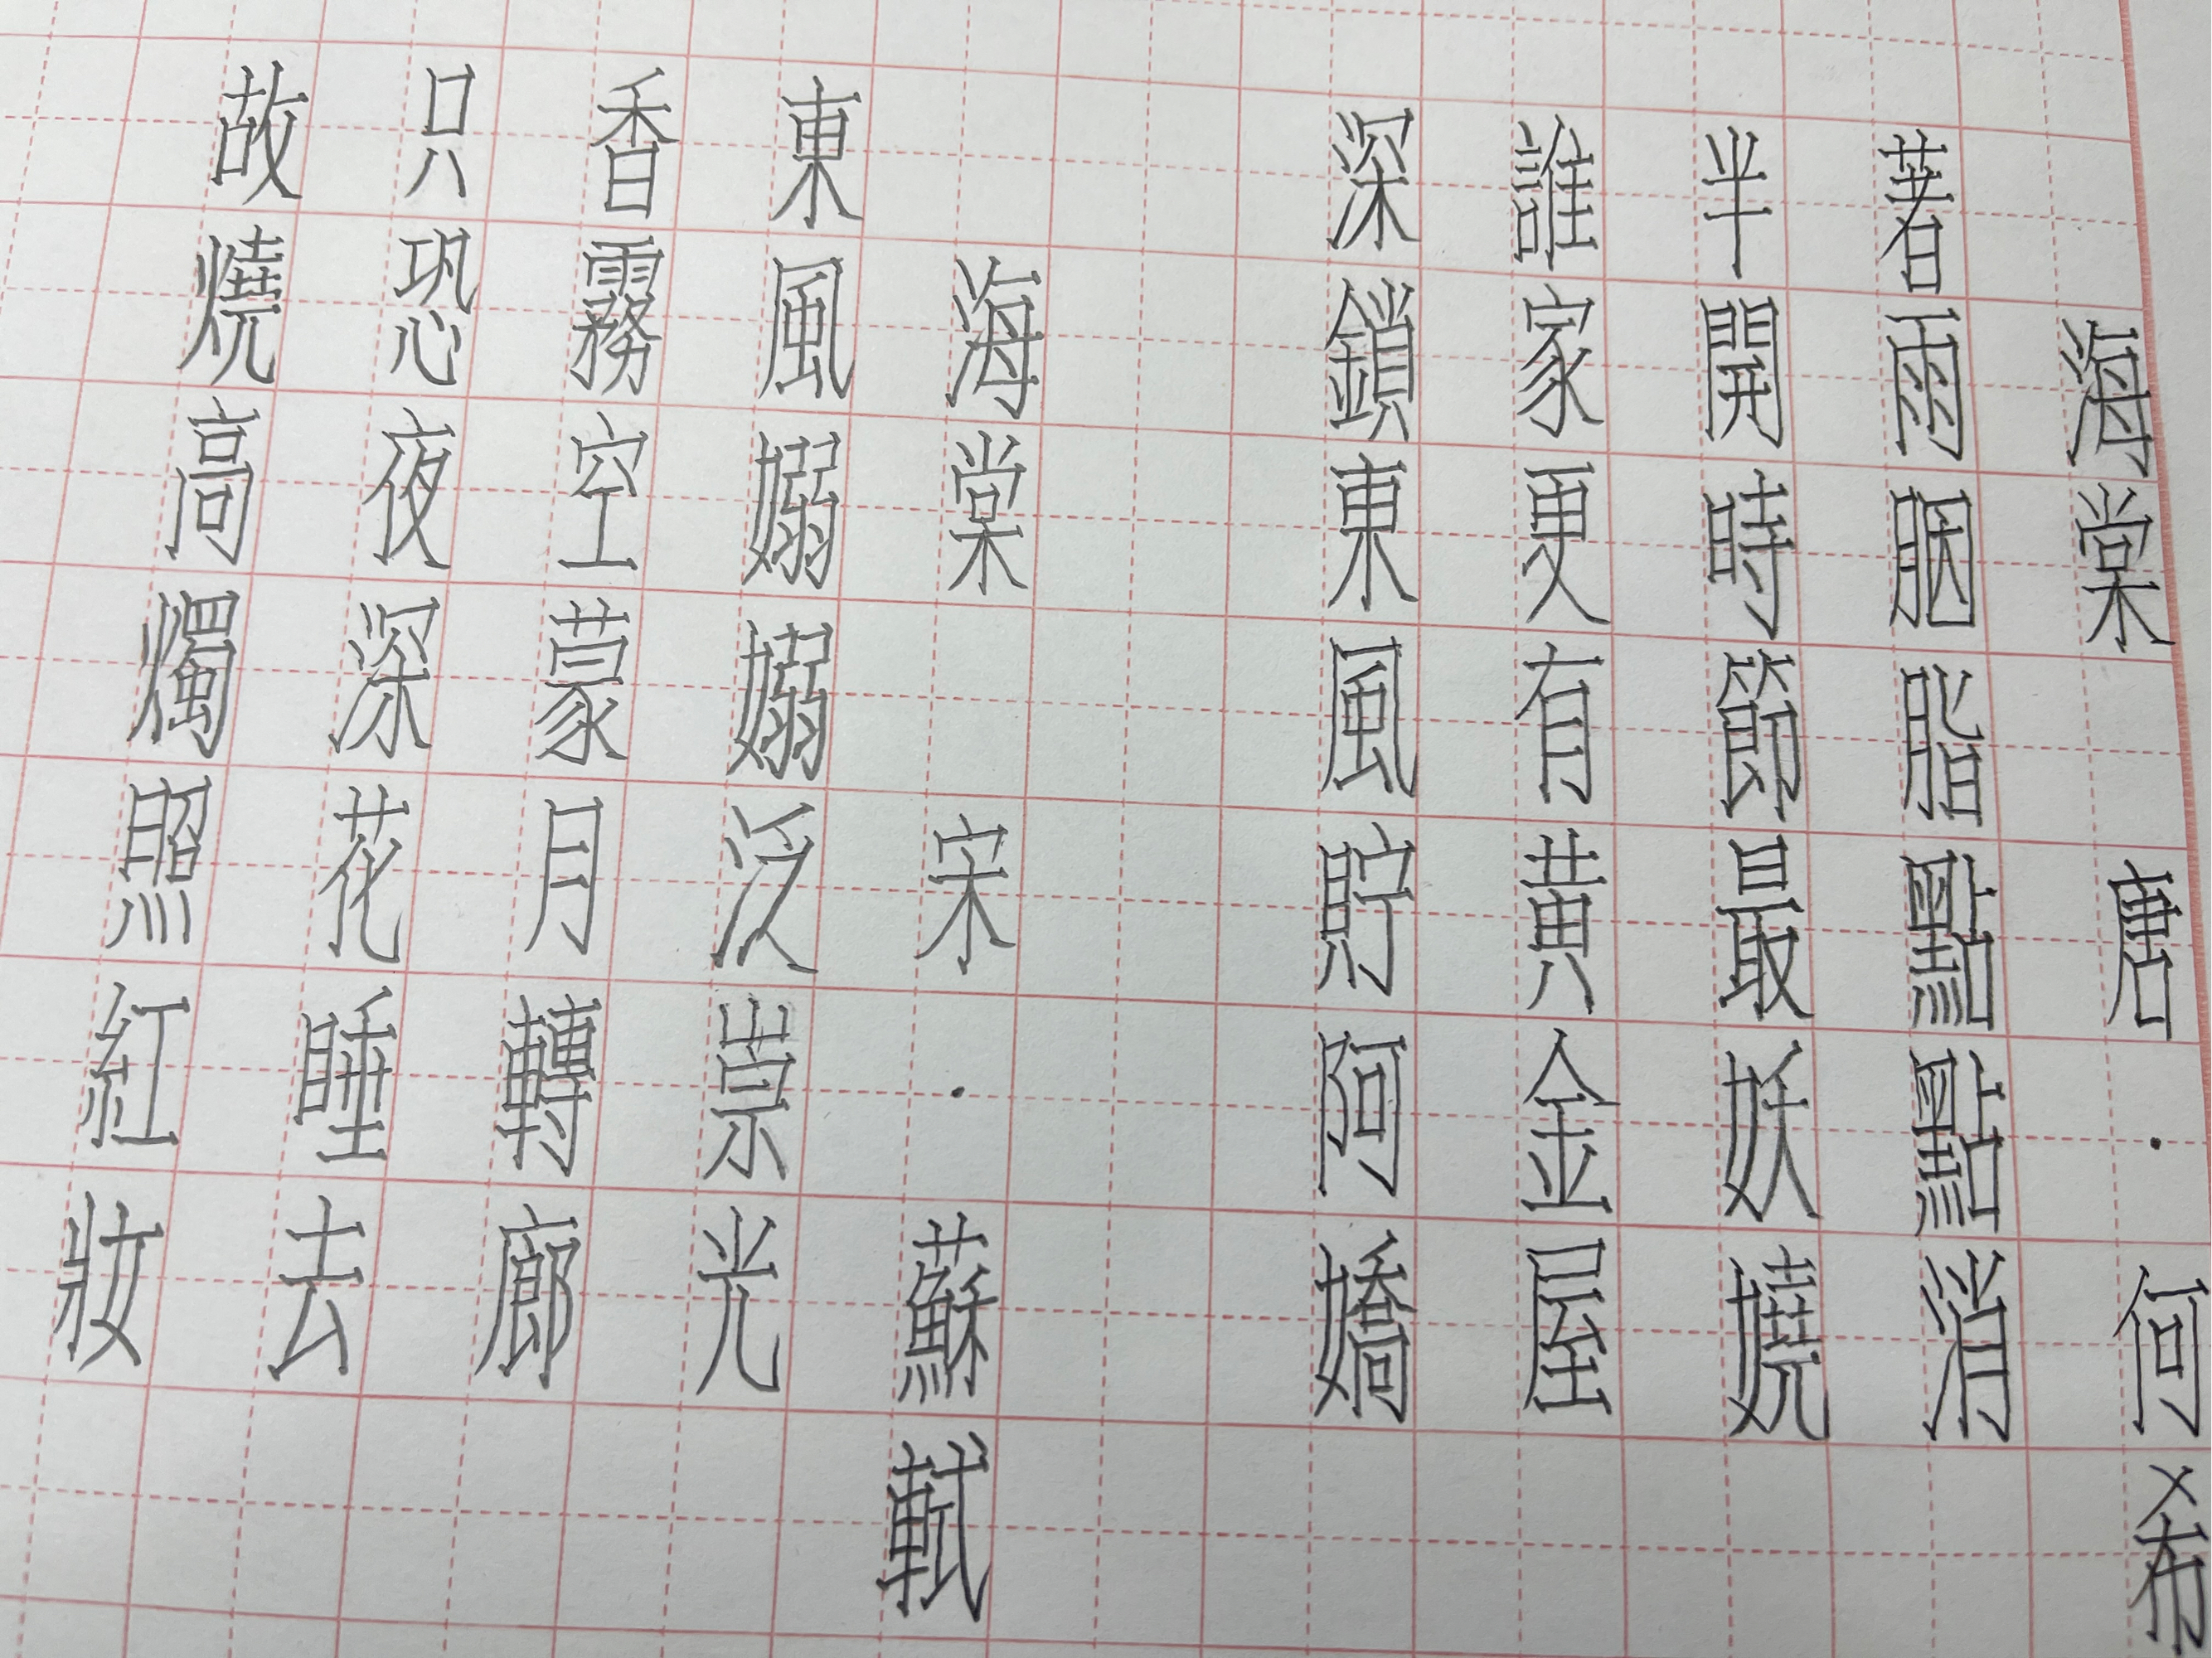 海棠 唐·何希
著雨胭脂點點消
半開時節最妖嬈
誰家更有黃金屋
深鎖東風貯阿嬌
海棠 宋·蘇軾
東風嫋嫋泛崇光
香霧空蒙月轉廊
只恐夜深花睡去
故燒高燭照紅妝